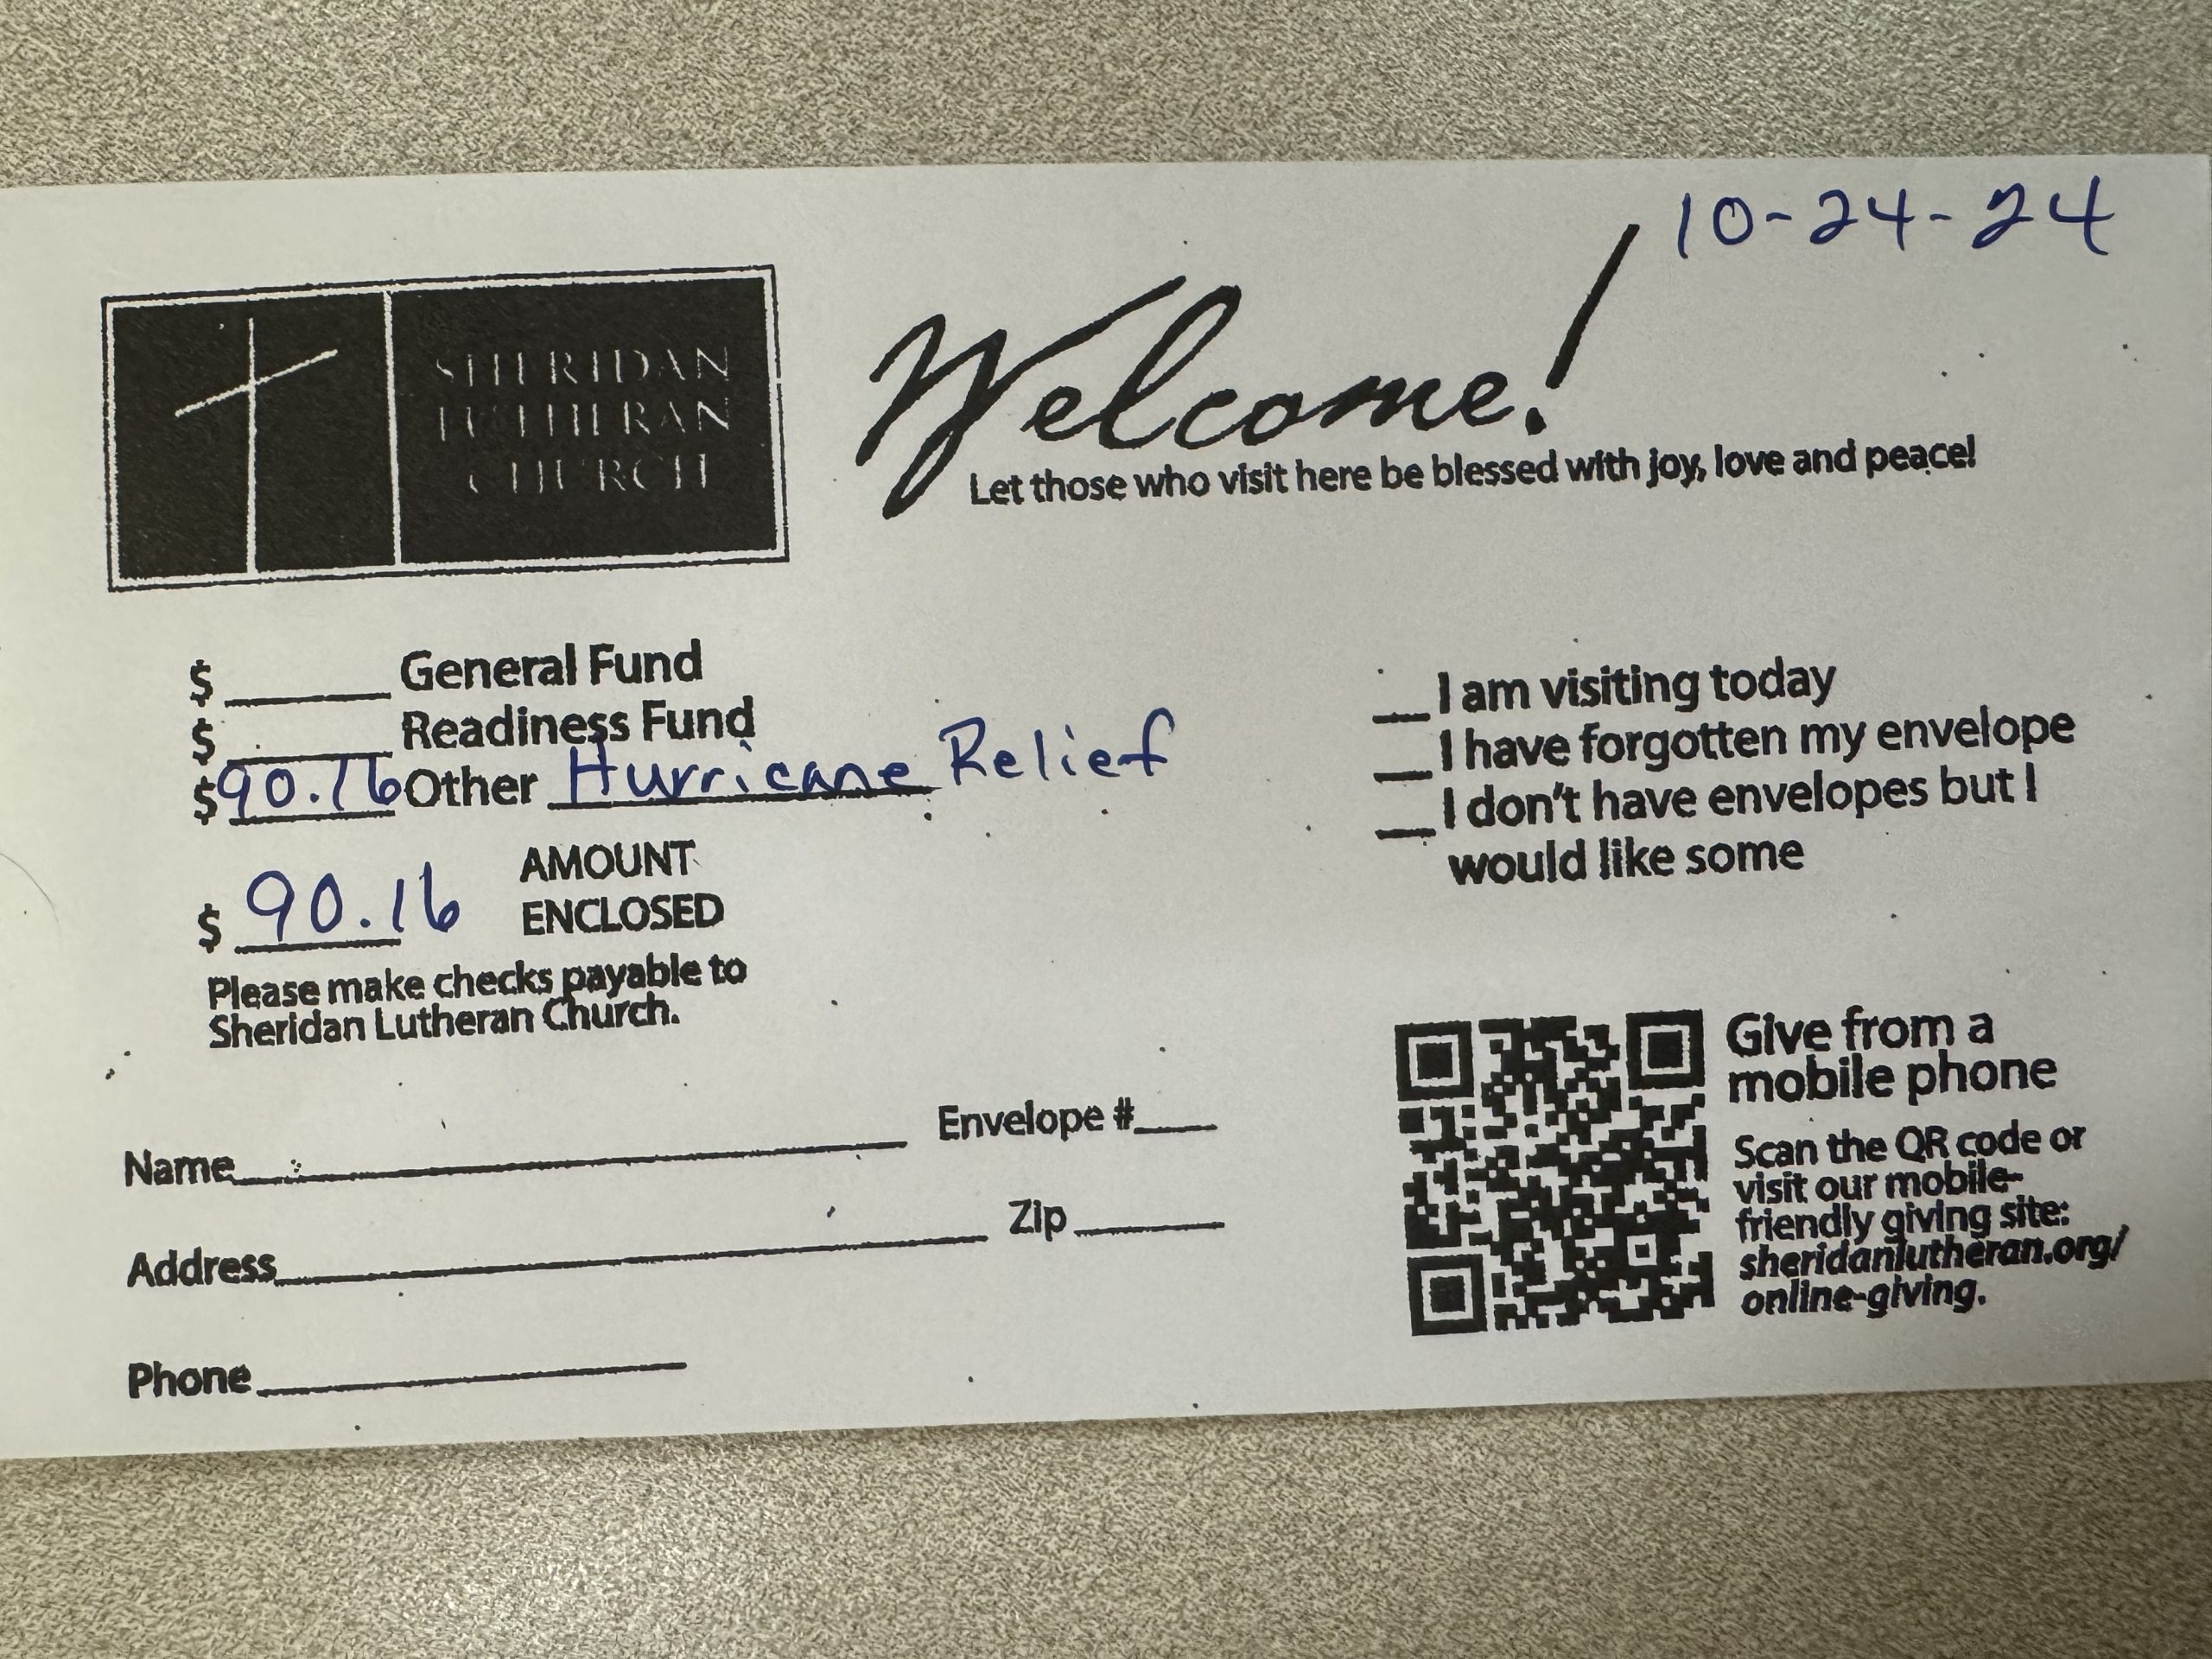 10-24-24
SHERIDAN
LUTHERAN
CHURCH
Welcome!
Let those who visit here be blessed with joy, love and peace!
$ ______ General Fund
$ ______ Readiness Fund
$90.16 Other Hurricane Relief
$ 90.16 AMOUNT
ENCLOSED
Please make checks payable to
Sheridan Lutheran Church.
__ I am visiting today
__ I have forgotten my envelope
__ I don't have envelopes but I
would like some
Name______ Envelope #___
Address______ Zip______
Phone______
Give from a
mobile phone
Scan the QR code or
visit our mobile-
friendly giving site:
sheridanlutheran.org/
online-giving.